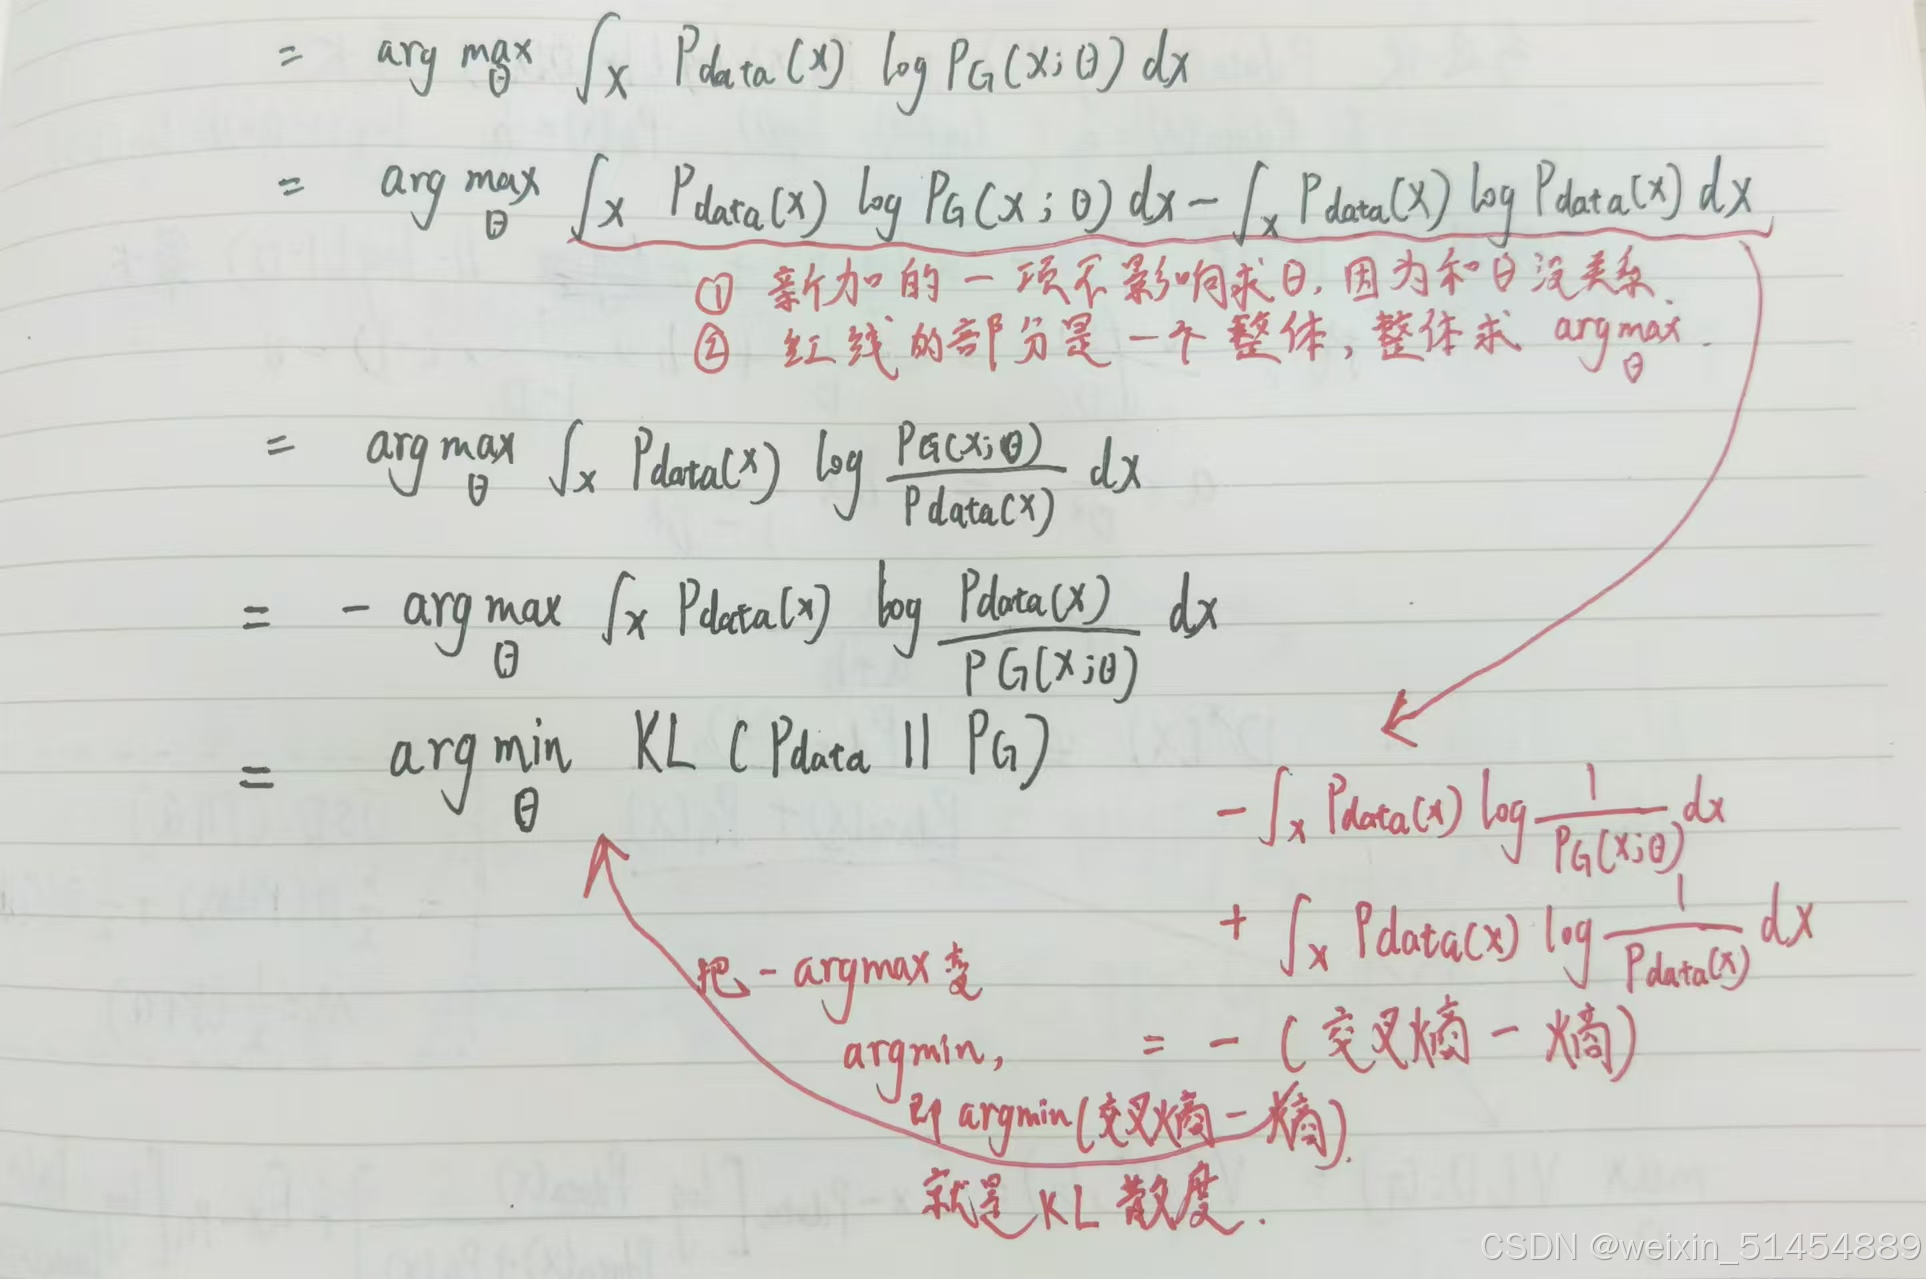 = arg max_θ ∫_x Pdata(x) log PG(x;θ) dx
= arg max_θ ∫_x Pdata(x) log PG(x;θ) dx - ∫_x Pdata(x) log Pdata(x) dx
① 新加的一项不影响求θ,因为和θ没关系.
② 红线的部分是一个整体,整体求 argmax_θ.
= arg max_θ ∫_x Pdata(x) log PG(x;θ)/Pdata(x) dx
= - arg max_θ ∫_x Pdata(x) log Pdata(x)/PG(x;θ) dx
= arg min_θ KL (Pdata || PG)
- ∫_x Pdata(x) log 1/PG(x;θ) dx
+ ∫_x Pdata(x) log 1/Pdata(x) dx
= - (交叉熵 - 熵)
把 - argmax 变
argmin,
即 argmin(交叉熵 - 熵).
就是 KL 散度.
CSDN @weixin_51454889